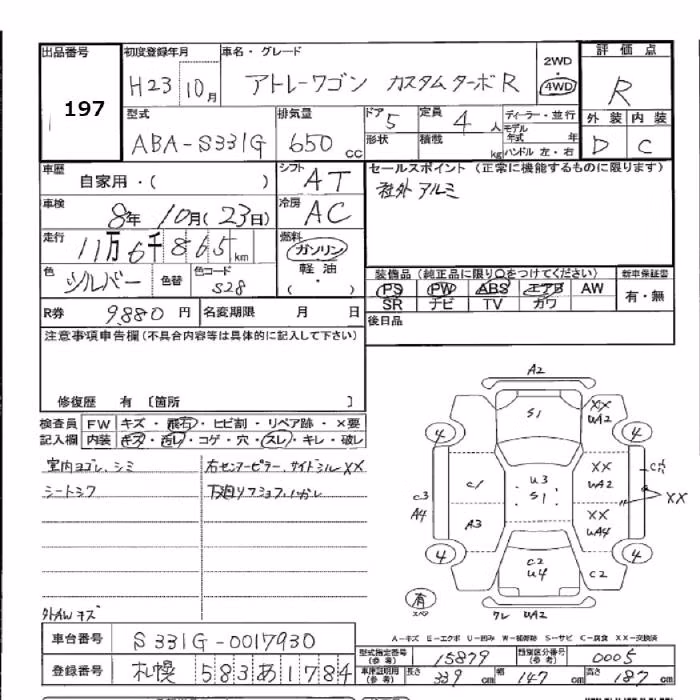 出品番号 初度登録年月 車名・グレード 2WD 評価点
197 H23 10月 アトレーワゴン カスタムターボR 4WD R
型式 排気量 ドア 5 定員 4人 ディーラー・並行 外装 内装
ABA-S331G 650cc 形状 積載 kg モデル年式 年 D C
ハンドル 左・右
車歴 シフト セールスポイント(正常に機能するものに限ります)
自家用・( ) AT 社外アルミ
車検 冷房
8年10月(23日) AC
走行 燃料
11万6千865km ガソリン
色 色替 色コード 軽油 装備品(純正品に限り○をつけてください) 新車保証書
シルバー S28 ( ・ ) PS PW ABS エアB AW 有・無
SR ナビ TV カワ
R券 9880円 名変期限 月 日 後日品
注意事項申告欄(不具合内容等は具体的に記入して下さい)
修復歴 有〔箇所 〕
検査員 FW キズ・飛石・ヒビ割・リペア跡・×要
記入欄 内装 キズ・汚レ・コゲ・穴・スレ・キレ・破レ
室内ヨゴレ、シミ 右センターピラー、サイドシルXX
シートシワ 下廻り
A2
S1 XX
UA2
4 4
C1 U3 XX
S1 UA2
C3 XX
A4 A3 XX
UA4
4 4
C2 C2
U4
有
スペア クレ UA2
外AWキズ
A-キズ E-エクボ U-凹み W-補修跡 S-サビ C-腐食 XX-交換済
車台番号 S331G-0017930 型式指定番号(参考) 15879 類別区分番号(参考) 0005
登録番号 札幌 583あ1784 車庫証明用(参考) 長さ 339cm 幅 147cm 高さ 187cm